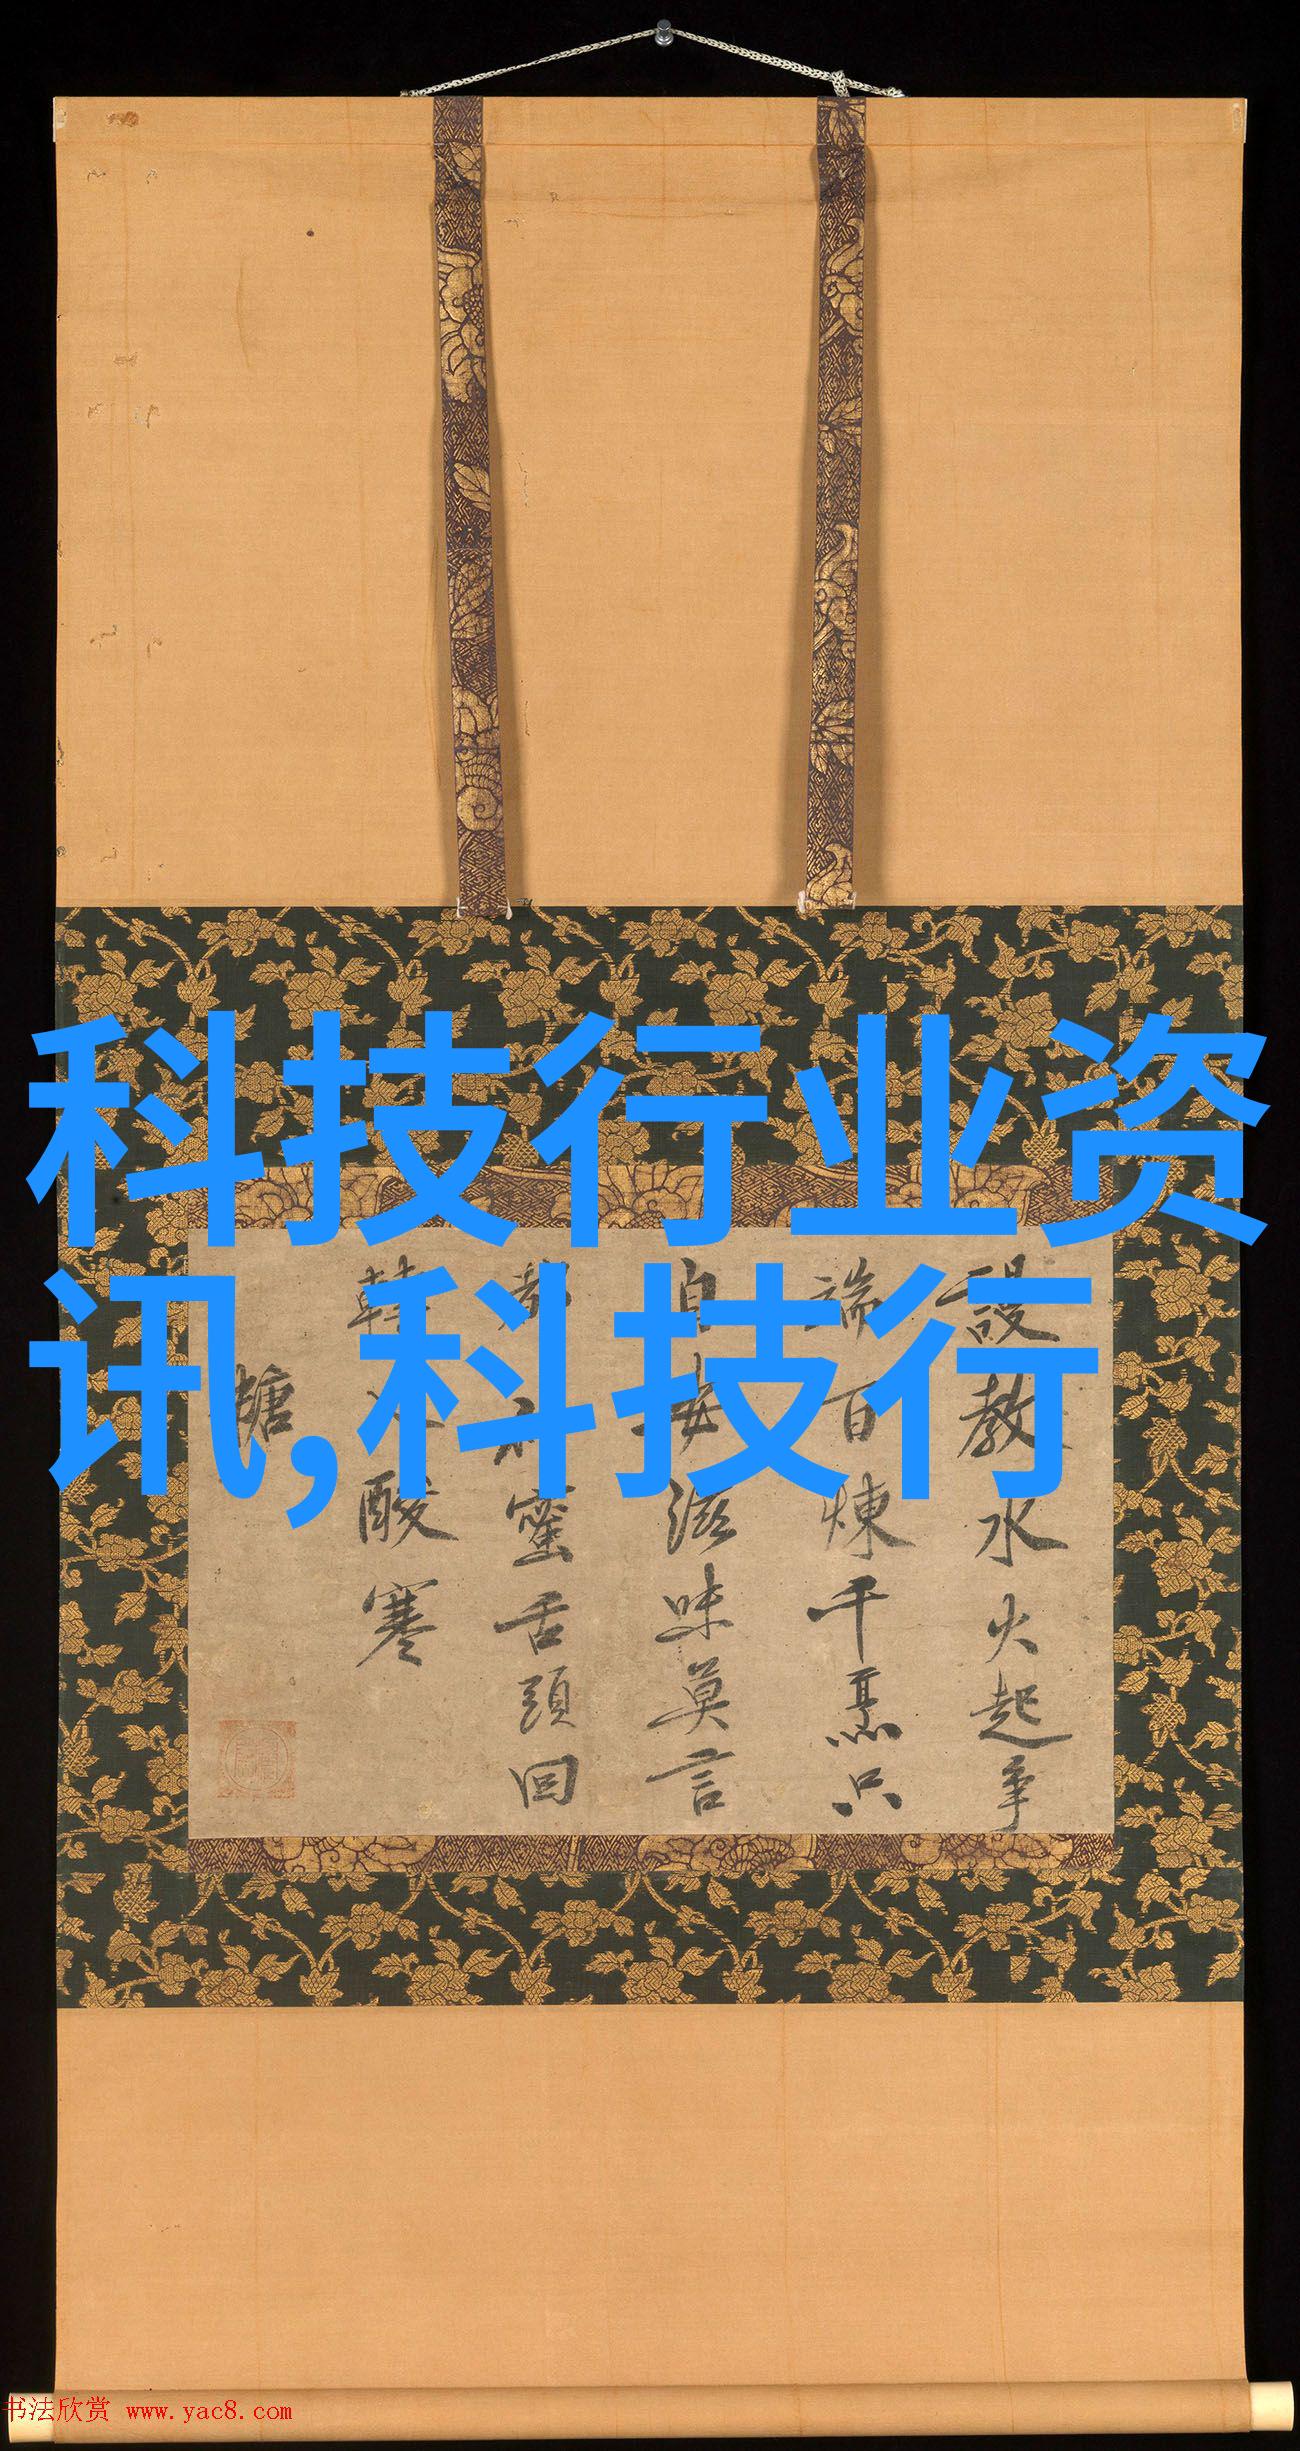 科技行业资
讯,科技行
謾教水火起爭
端百煉千烹只
自滋味莫言
蜜舌頭回
酸寒
书法欣赏 www.yac8.com